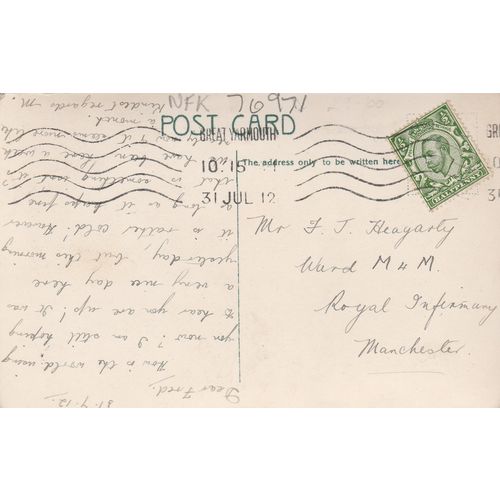 NFK 76971
POST CARD
GREAT YARMOUTH
10.15
31 JUL 12
The address only to be written here
HALFPENNY
Mr F. J. Heagarty
Ward M & M.
Royal Infirmary
Manchester.
31.7.12.
Dear Fred,
How is the world using
you now? I am still hoping
to hear you are up! It was
a very nice day here
yesterday, but this morning
it is rather cold! However
as long as it keeps fine
that is something isn't it?
have been here a week
now & it seems more like
a month.
Kindest regards M.